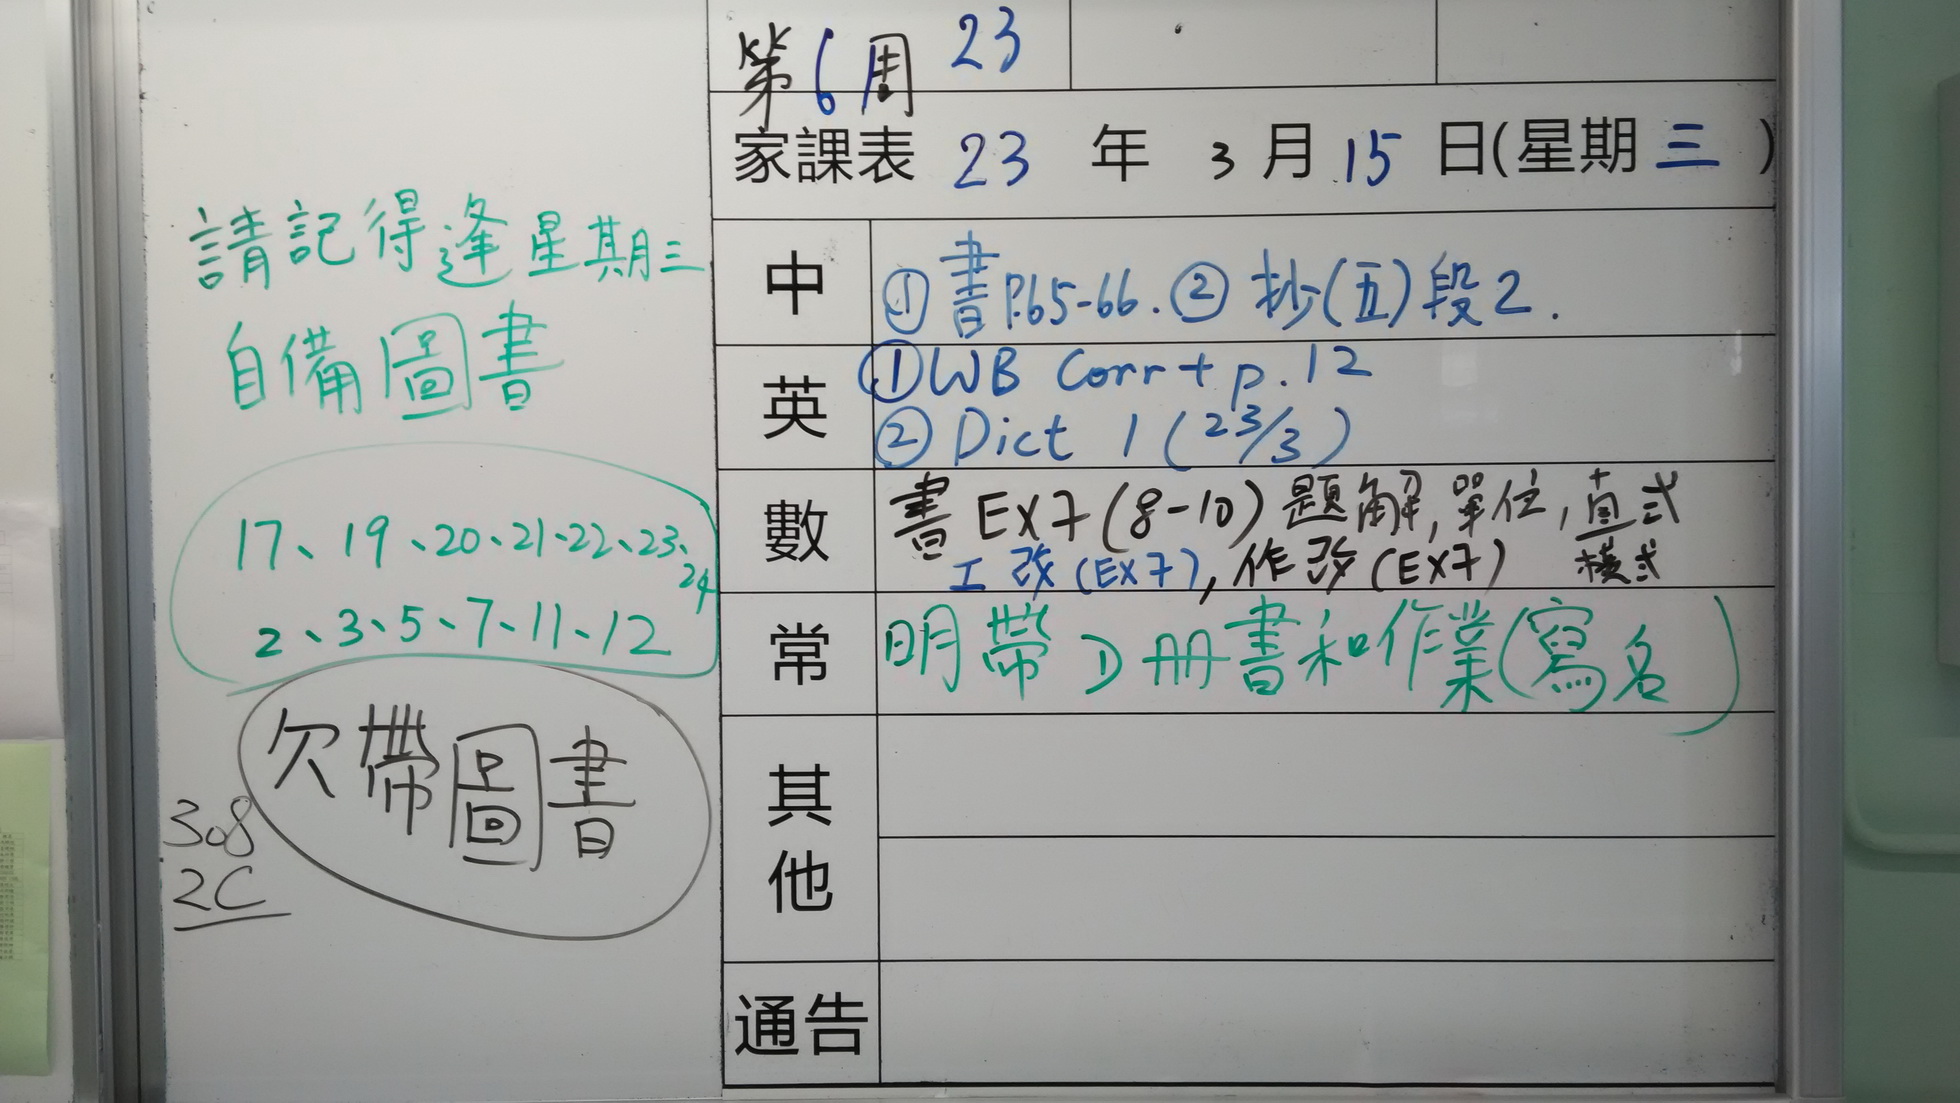 請記得逢星期三
自備圖書
17、19、20、21、22、23、24
2、3、5、7、11、12
欠帶圖書
308
2C
第6周 23
家課表 23 年 3 月 15 日(星期三)
中 ①書P.65-66.②抄(五)段2.
英 ①WB Corr + p.12
②Dict 1 (23/3)
數 書 EX7(8-10)題解,單位,直式
工改(EX7),作改(EX7) 橫式
常 明帶D冊書和作業(寫名)
其他
通告